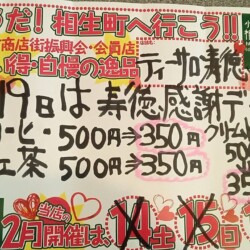 だ！相生町へ行こう!!
商店街振興会・会員店
得・自慢の逸品
ティーサロン寿徳
19日は寿徳感謝デ
コーヒー500円⇒350円
紅茶500円⇒350円
クリーム
50
35
当店の
2月開催は、14土15日